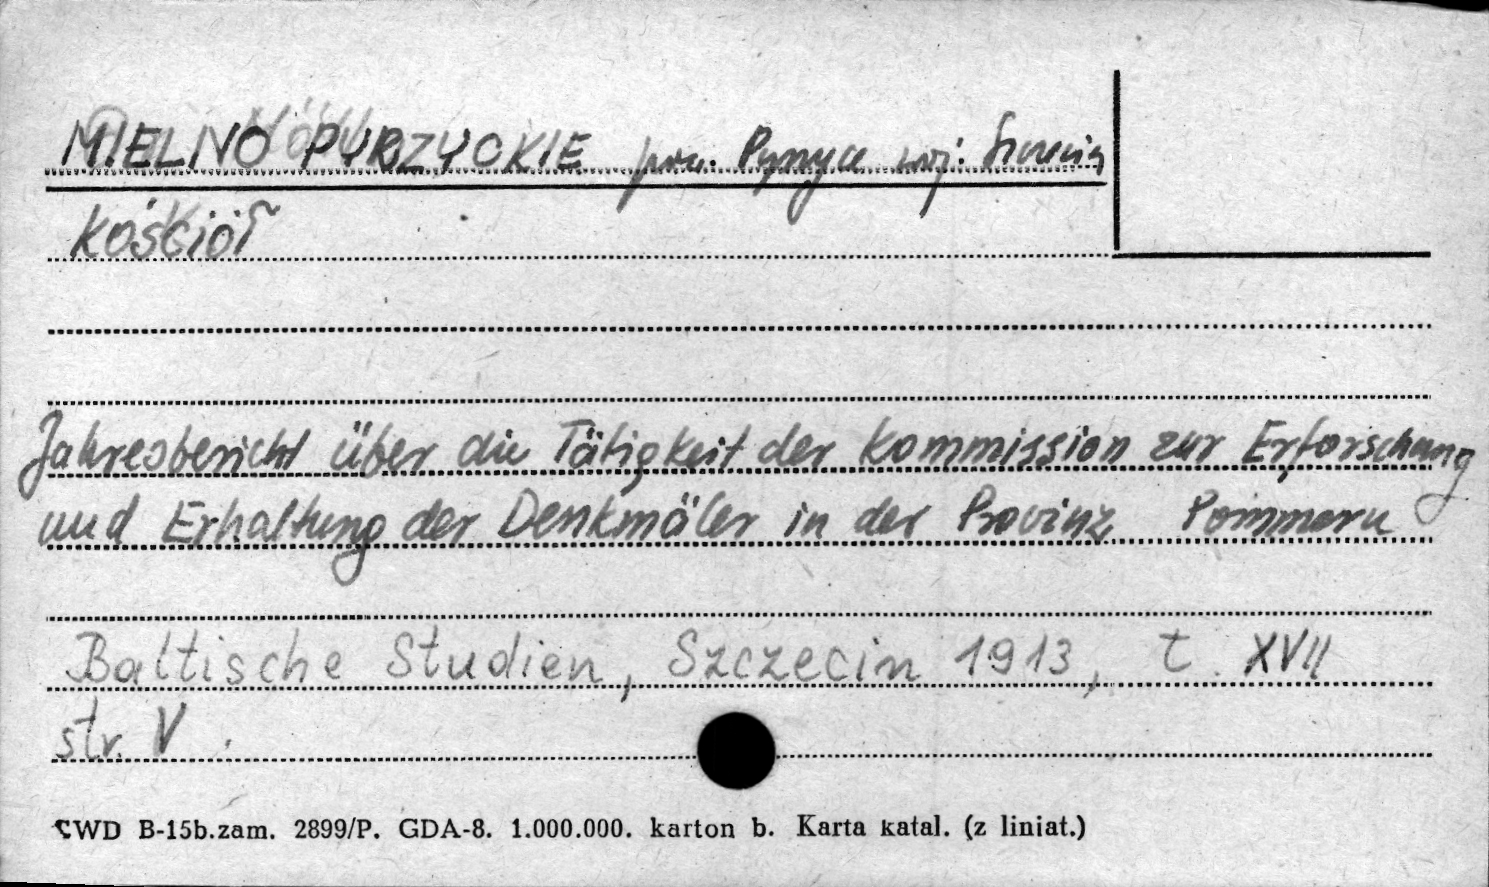 MIELNO PYRZYCKIE pow. Pyrzyce woj. Szczecin
Kościół
Jahresbericht über die Tätigkeit der Kommission zur Erforschung
und Erhaltung der Denkmäler in der Provinz Pommern
Baltische Studien, Szczecin 1913, t. XVII
str. V.
CWD B-15b.zam. 2899/P. GDA-8. 1.000.000. karton b. Karta katal. (z liniat.)